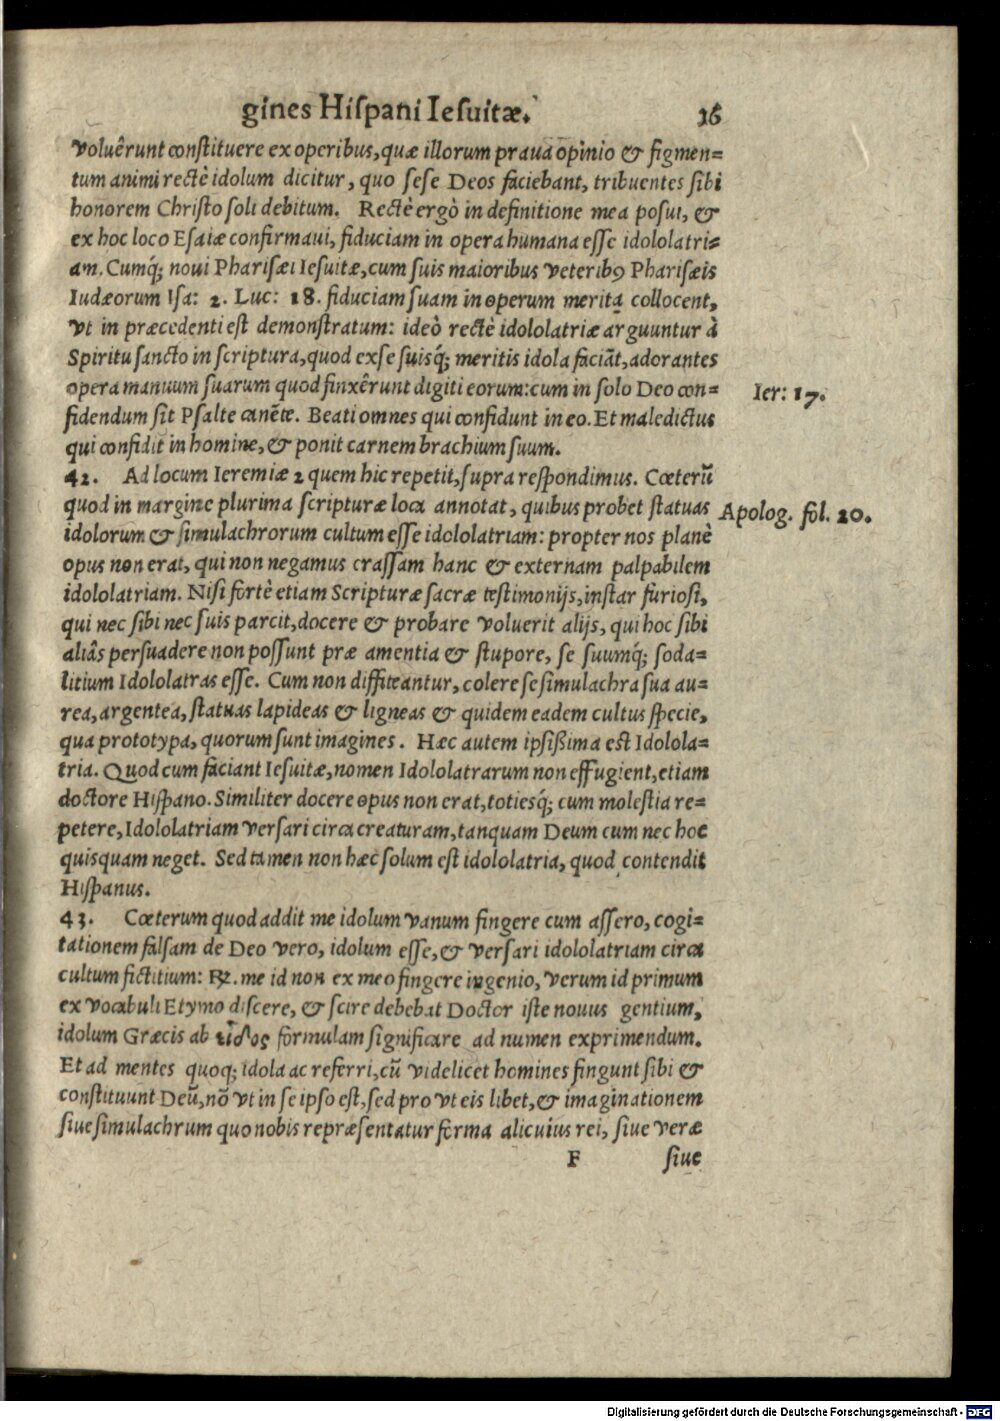 gines Hiſpani Ieſuitæ.
16
voluêrunt conſtituere ex operibus, quæ illorum praua opinio & figmen=
tum animi rectè idolum dicitur, quo ſeſe Deos faciebant, tribuentes ſibi
honorem Chriſto ſoli debitum. Rectè ergò in definitione mea poſui, &
ex hoc loco Eſaiæ confirmaui, fiduciam in opera humana eſſe idololatri=
am. Cumq́; noui Phariſæi Ieſuitæ, cum ſuis maioribus veterib9 Phariſæis
Iudæorum Iſa: 2. Luc: 18. fiduciam ſuam in operum merita collocent,
vt in præcedenti eſt demonſtratum: ideò rectè idololatriæ arguuntur à
Spiritu ſancto in ſcriptura, quod ex ſe ſuisq́; meritis idola faciāt, adorantes
opera manuum ſuarum quod finxêrunt digiti eorum: cum in ſolo Deo con=
fidendum ſit Pſalte canēte. Beati omnes qui confidunt in eo. Et maledictus
qui confidit in homine, & ponit carnem brachium ſuum.
Ier: 17.
42. Ad locum Ieremiæ 2 quem hic repetit, ſupra reſpondimus. Cœterū
quod in margine plurima ſcripturæ loca annotat, quibus probet ſtatuas
idolorum & ſimulachrorum cultum eſſe idololatriam: propter nos planè
opus non erat, qui non negamus craſſam hanc & externam palpabilem
idololatriam. Niſi fortè etiam Scripturæ ſacræ teſtimonijs, inſtar furioſi,
qui nec ſibi nec ſuis parcit, docere & probare voluerit alijs, qui hoc ſibi
aliâs perſuadere non poſſunt præ amentia & ſtupore, ſe ſuumq́; ſoda=
litium Idololatras eſſe. Cum non diffiteantur, colere ſe ſimulachra ſua au=
rea, argentea, ſtatuas lapideas & ligneas & quidem eadem cultus ſpecie,
qua prototypa, quorum ſunt imagines. Hæc autem ipſißima eſt Idolola=
tria. Quod cum faciant Ieſuitæ, nomen Idololatrarum non effugient, etiam
doctore Hiſpano. Similiter docere opus non erat, totiesq́; cum moleſtia re=
petere, Idololatriam verſari circa creaturam, tanquam Deum cum nec hoc
quisquam neget. Sed tamen non hæc ſolum eſt idololatria, quod contendit
Hiſpanus.
Apolog. fol. 20.
43. Cœterum quod addit me idolum vanum fingere cum aſſero, cogi=
tationem falſam de Deo vero, idolum eſſe, & verſari idololatriam circa
cultum fictitium: ℞. me id non ex meo fingere ingenio, verum id primum
ex vocabuli Etymo diſcere, & ſcire debebat Doctor iſte nouus gentium,
idolum Græcis ab εἶδος formulam ſignificare ad numen exprimendum.
Et ad mentes quoq; idola ac referri, cū videlicet homines fingunt ſibi &
conſtituunt Deū, nō vt in ſe ipſo eſt, ſed pro vt eis libet, & imaginationem
ſiue ſimulachrum quo nobis repræſentatur forma alicuius rei, ſiue veræ
F
ſiue
Digitalisierung gefördert durch die Deutsche Forschungsgemeinschaft - DFG